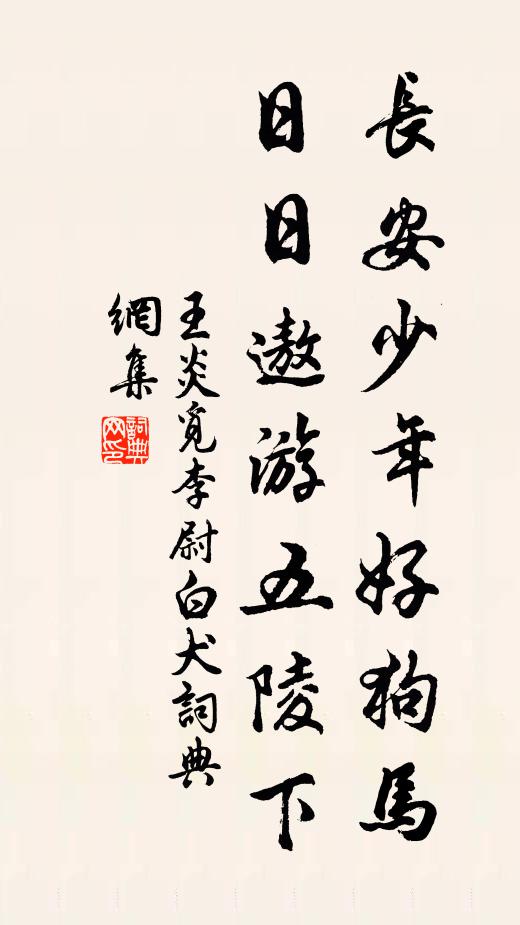 長安少年好狗馬
日日遨游五陵下
王炎覓李尉白犬詞典
網集
詞典
网印